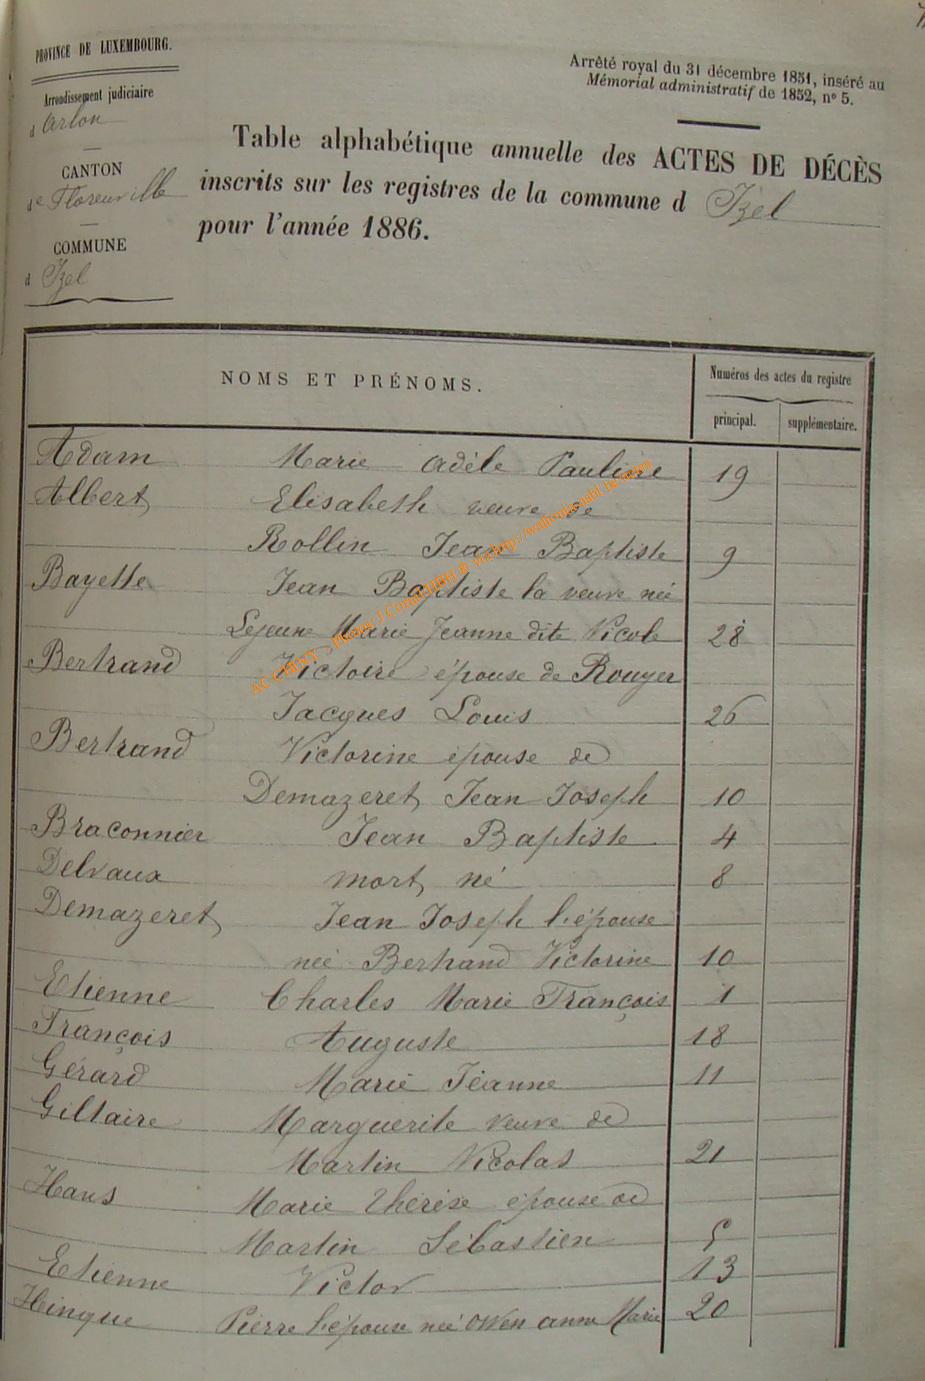 PROVINCE DE LUXEMBOURG.
Arrondissement judiciaire
d Arlon
CANTON
de Florenville
COMMUNE
d Izel
Arrêté royal du 31 décembre 1851, inséré au
Mémorial administratif de 1852, nº 5.
Table alphabétique annuelle des ACTES DE DÉCÈS
inscrits sur les registres de la commune d Izel
pour l'année 1886.
NOMS ET PRÉNOMS.
Numéros des actes du registre
principal. supplémentaire.
Adam Marie Adèle Pauline 19
Albert Elisabeth veuve de
Rollin Jean Baptiste 9
Bayette Jean Baptiste la veuve née
Lejeune Marie Jeanne dite Nicole 28
Bertrand Victoire épouse de Rouyer
Jacques Louis 26
Bertrand Victorine épouse de
Demazeret Jean Joseph 10
Braconnier Jean Baptiste 4
Delvaux mort né 8
Demazeret Jean Joseph l'épouse
née Bertrand Victorine 10
Etienne Charles Marie François 1
François Auguste 18
Gérard Marie Jeanne 11
Giltaire Marguerite veuve de
Martin Nicolas 21
Hans Marie Thérèse épouse de
Martin Sébastien 5
Etienne Victor 13
Hinque Pierre l'épouse née Owen anne Marie 20